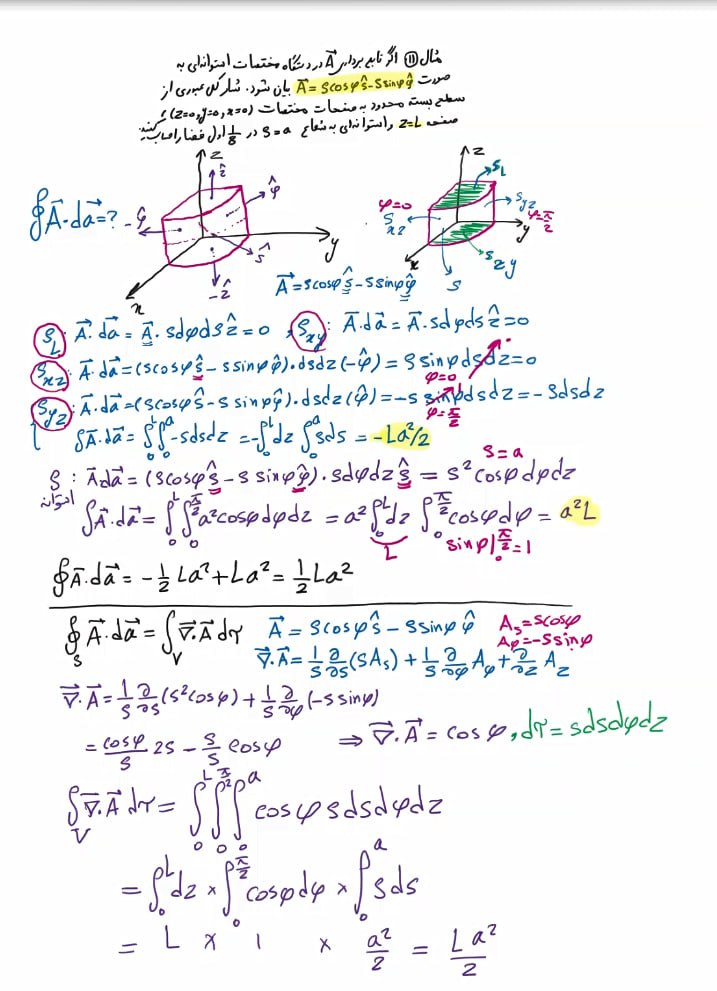 مثال ⑪ اگر تابع برداری A⃗ در دستگاه مختصات استوانه‌ای به
صورت A⃗ = scosφŝ - ssinφφ̂ بیان شود. شار کل عبوری از
سطح بسته محدود به صفحات مختصات (z=0, y=0, x=0)،
صفحه z=L و استوانه‌ای به شعاع s=a در 1/8 اول فضا را حساب کنید.
z
ẑ
φ̂
-φ̂
ŝ
-ẑ
y
x
∮A⃗.da⃗=?
z
S_L
φ=0
S_xz
S_yz
φ=π/2
y
x
S_xy
S
A⃗=scosφŝ-ssinφφ̂
S_L: A⃗.da⃗=A⃗.sdφdsẑ=0 , S_xy: A⃗.da⃗=A⃗.sdφdsẑ=0
S_xz: A⃗.da⃗=(scosφŝ-ssinφφ̂).dsdz(-φ̂)=ssinφdsdz=0
φ=0
S_yz: A⃗.da⃗=(scosφŝ-ssinφφ̂).dsdz(φ̂)=-ssinφdsdz=-sdsdz
φ=π/2
∫A⃗.da⃗=∫₀^L∫₀^a-sdsdz=-∫₀^L dz∫₀^a sds=-La²/2
s=a
S: A⃗da⃗=(scosφŝ-ssinφφ̂).sdφdzŝ=s²cosφdφdz
استوانه
∫A⃗.da⃗=∫₀^L∫₀^(π/2)a²cosφdφdz=a²∫₀^L dz∫₀^(π/2)cosφdφ=a²L
L sinφ|₀^(π/2)=1
∮A⃗.da⃗=-½La²+La²=½La²
∮_S A⃗.da⃗=∫_V ∇⃗.A⃗dτ A⃗=scosφŝ-ssinφφ̂ A_s=scosφ
A_φ=-ssinφ
∇⃗.A⃗=1/s ∂/∂s(sA_s)+1/s ∂/∂φ A_φ+∂/∂z A_z
∇⃗.A⃗=1/s ∂/∂s(s²cosφ)+1/s ∂/∂φ(-ssinφ)
=cosφ/s 2s - s/s cosφ ⇒ ∇⃗.A⃗=cosφ, dτ=sdsdφdz
∫_V ∇⃗.A⃗dτ=∫₀^L∫₀^(π/2)∫₀^a cosφsdsdφdz
=∫₀^L dz×∫₀^(π/2)cosφdφ×∫₀^a sds
= L × 1 × a²/2 = La²/2